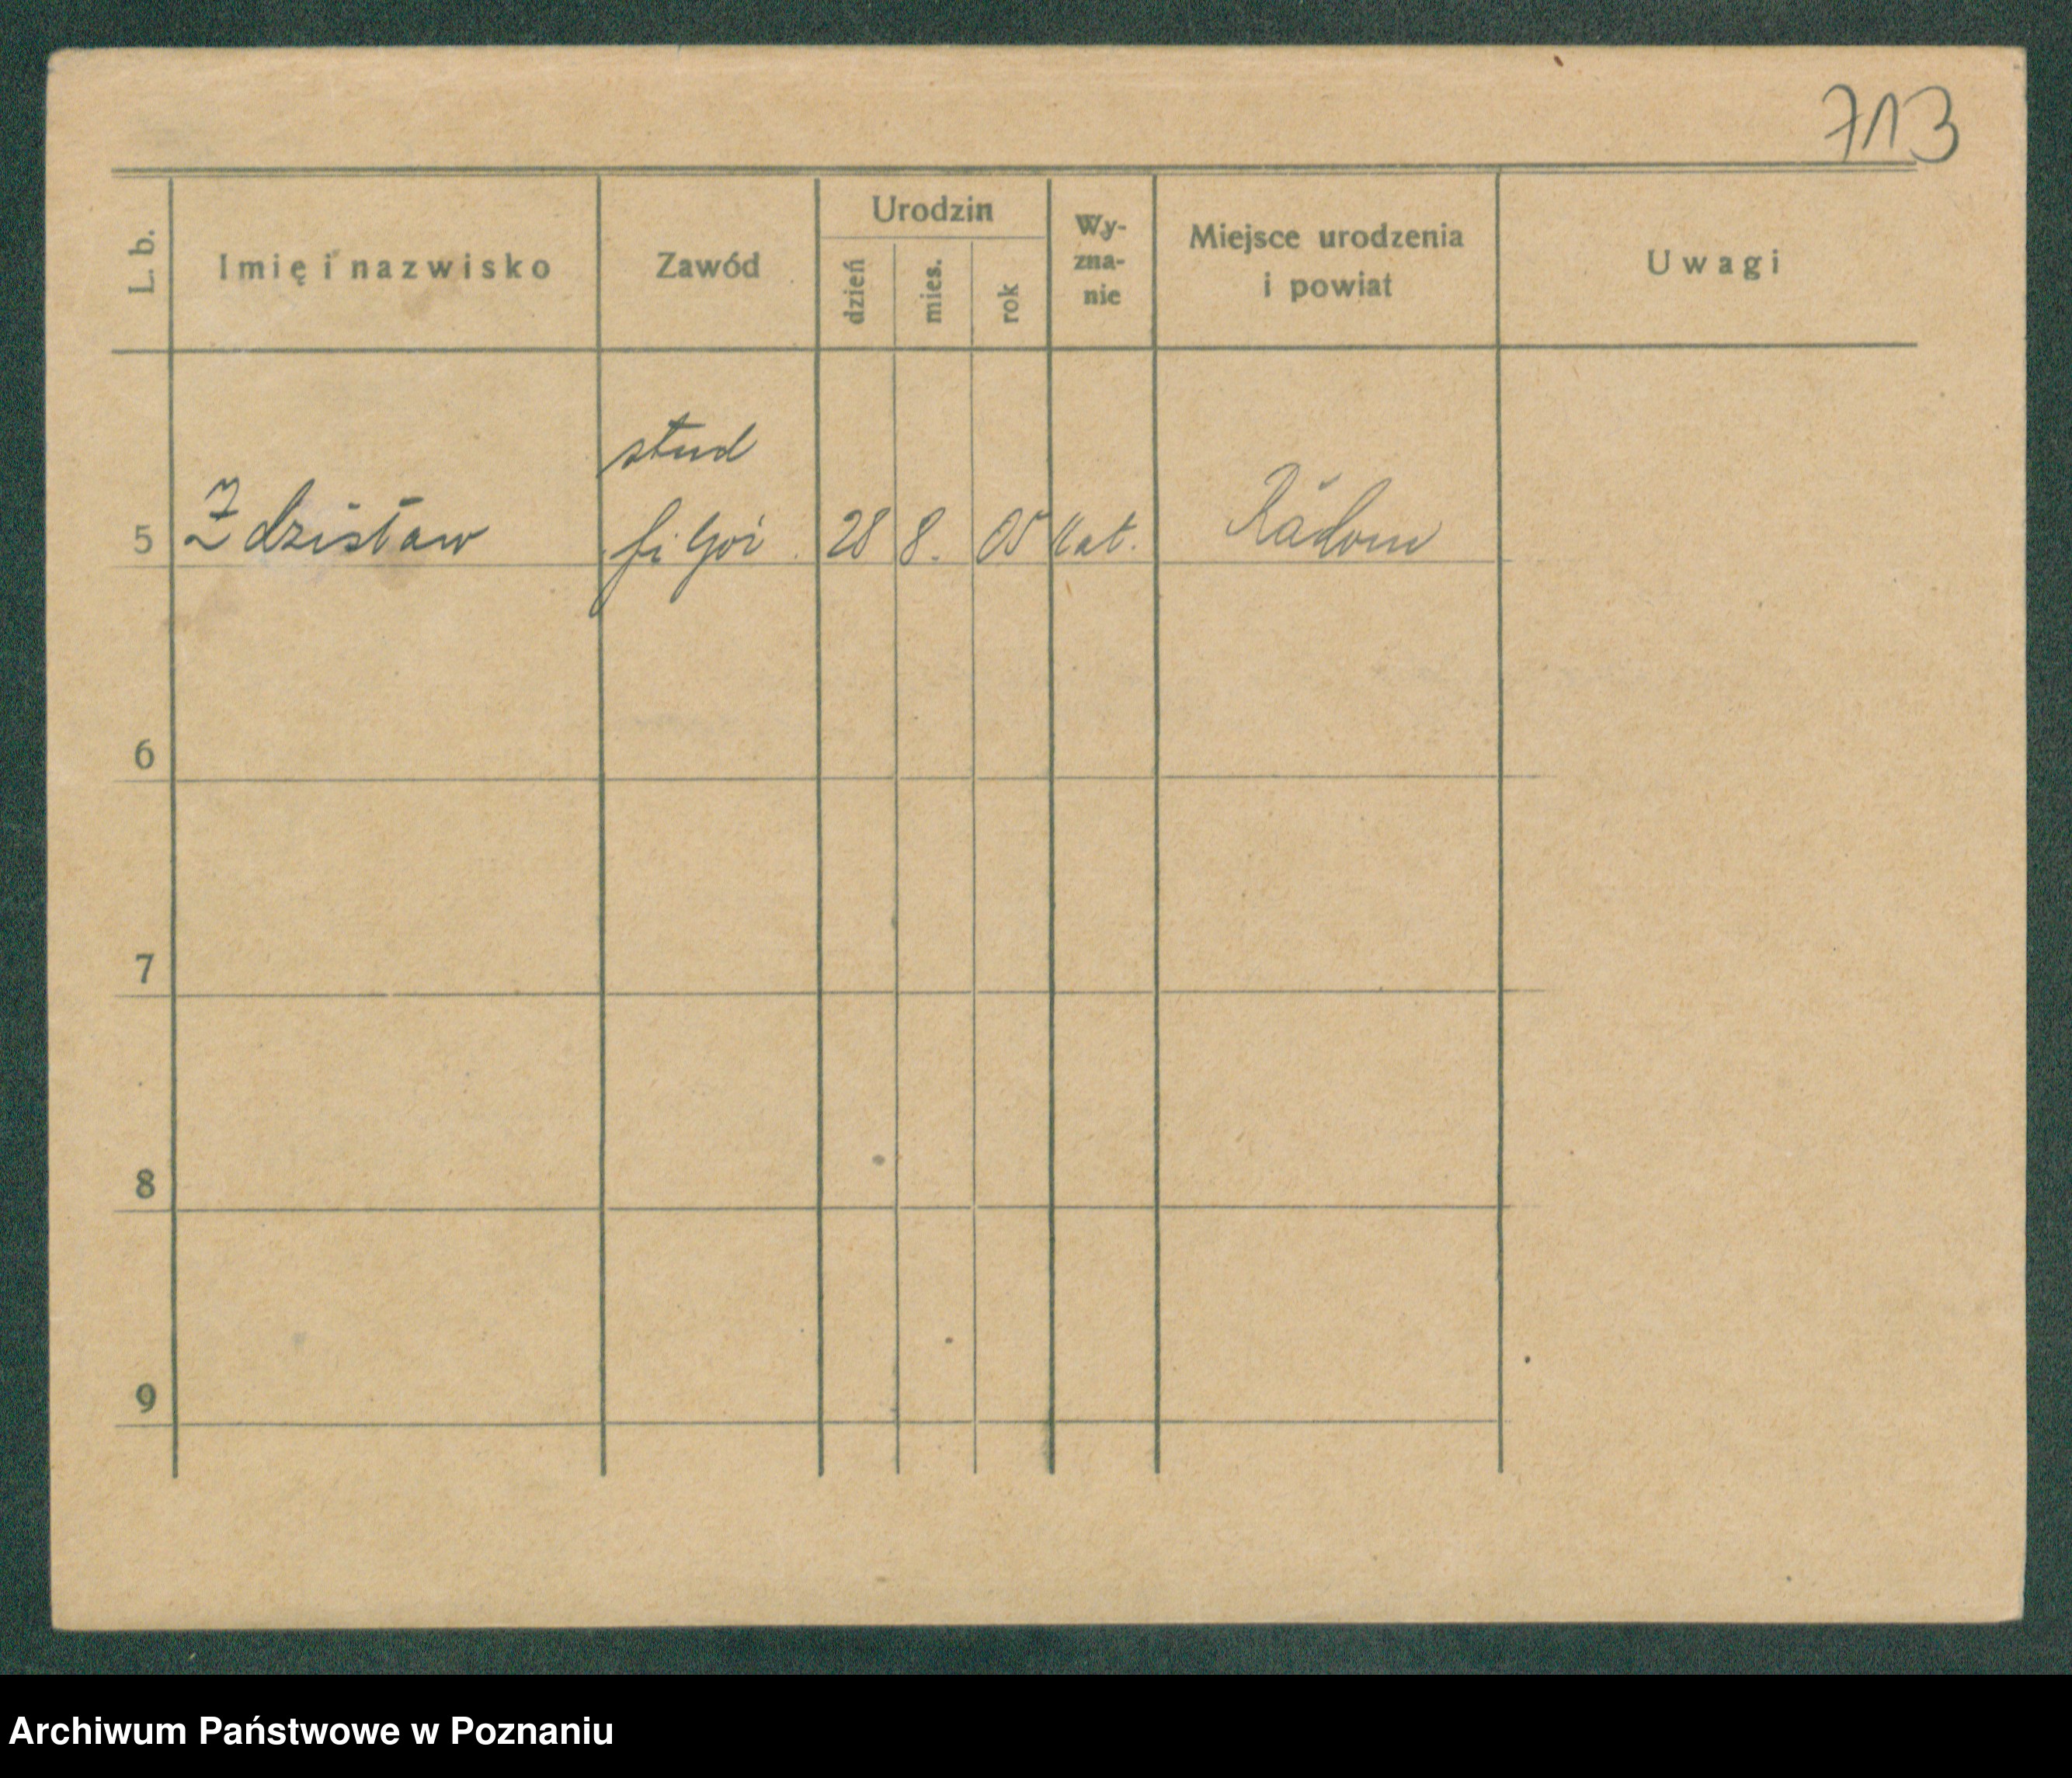 713
L. b.
Imię i nazwisko
Zawód
Urodzin
dzień
mies.
rok
Wy-
zna-
nie
Miejsce urodzenia
i powiat
Uwagi
stud
5 Zdzisław 28 8. 05 kat. Radom
6
7
8
9
Archiwum Państwowe w Poznaniu